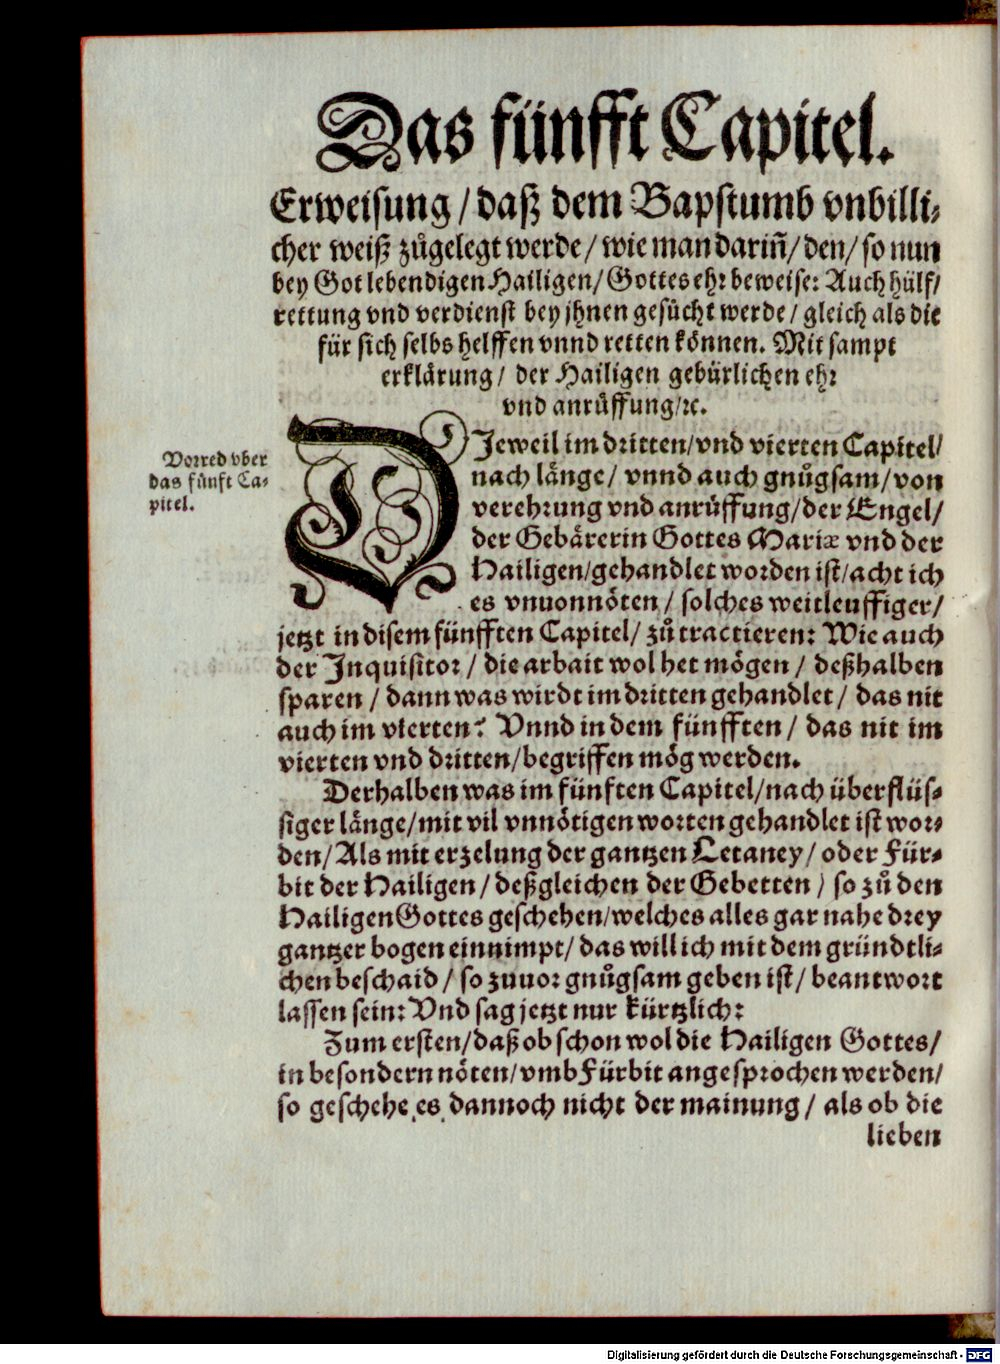 Das fünfft Capitel.
Erweisung / daß dem Bapstumb vnbilli⸗
cher weiß zůgelegt werde / wie man dariñ / den / so nun
bey Got lebendigen Hailigen / Gottes ehr beweise: Auch hülf /
rettung vnd verdienst bey jhnen gesücht werde / gleich als die
für sich selbs helffen vnnd retten können. Mit sampt
erklärung / der Hailigen gebürlichen ehr
vnd anrüffung / ꝛc.
Vorred vber
das fünft Ca⸗
pitel.
DJeweil im dritten / vnd vierten Capitel /
nach länge / vnnd auch gnůgsam / von
verehrung vnd anrüffung / der Engel /
der Gebärerin Gottes Mariæ vnd der
Hailigen / gehandlet worden ist / acht ich
es vnuonnöten / solches weitleuffiger /
jetzt in disem fünfften Capitel / zů tractieren: Wie auch
der Jnquisitor / die arbait wol het mögen / deßhalben
sparen / dann was wirdt im dritten gehandlet / das nit
auch im vierten? Vnnd in dem fünfften / das nit im
vierten vnd dritten / begriffen mög werden.
Derhalben was im fünften Capitel / nach überflüs⸗
siger länge / mit vil vnnötigen worten gehandlet ist wor⸗
den / Als mit erzelung der gantzen Letaney / oder Für⸗
bit der Hailigen / deßgleichen der Gebetten / so zů den
Hailigen Gottes geschehen / welches alles gar nahe drey
gantzer bogen einnimpt / das will ich mit dem gründtli⸗
chen beschaid / so zuuor gnůgsam geben ist / beantwort
lassen sein: Vnd sag jetzt nur kürtzlich:
Zum ersten / daß ob schon wol die Hailigen Gottes /
in besondern nöten / vmb Fürbit angesprochen werden /
so geschehe es dannoch nicht der mainung / als ob die
lieben
Digitalisierung gefördert durch die Deutsche Forschungsgemeinschaft - DFG